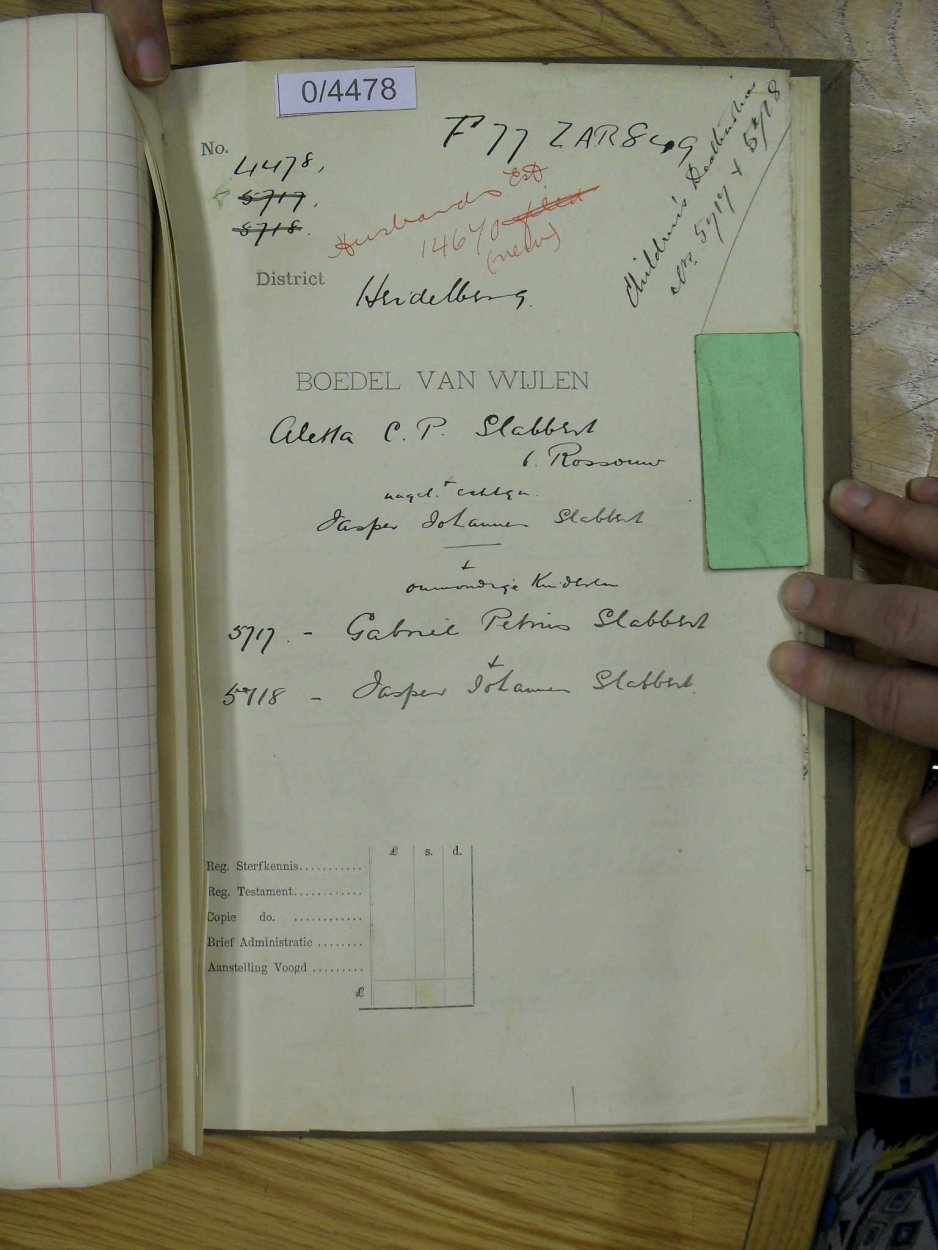 0/4478
No.
4478.
5717.
5718.
F 77 ZAR 8649
Husbands Est
14670 filed
(new)
Children's Death notices
Nos. 5717 + 5718
District
Heidelberg.
BOEDEL VAN WIJLEN
Aletta C. P. Slabbert
b. Rossouw
nagel. echtgn.
Jasper Johannes Slabbert
+
onmondige Kinderen
5717. - Gabriel Petrus Slabbert
+
5718 - Jasper Johannes Slabbert.
£ s. d.
Reg. Sterfkennis...........
Reg. Testament............
Copie do. ............
Brief Administratie ........
Aanstelling Voogd .........
£